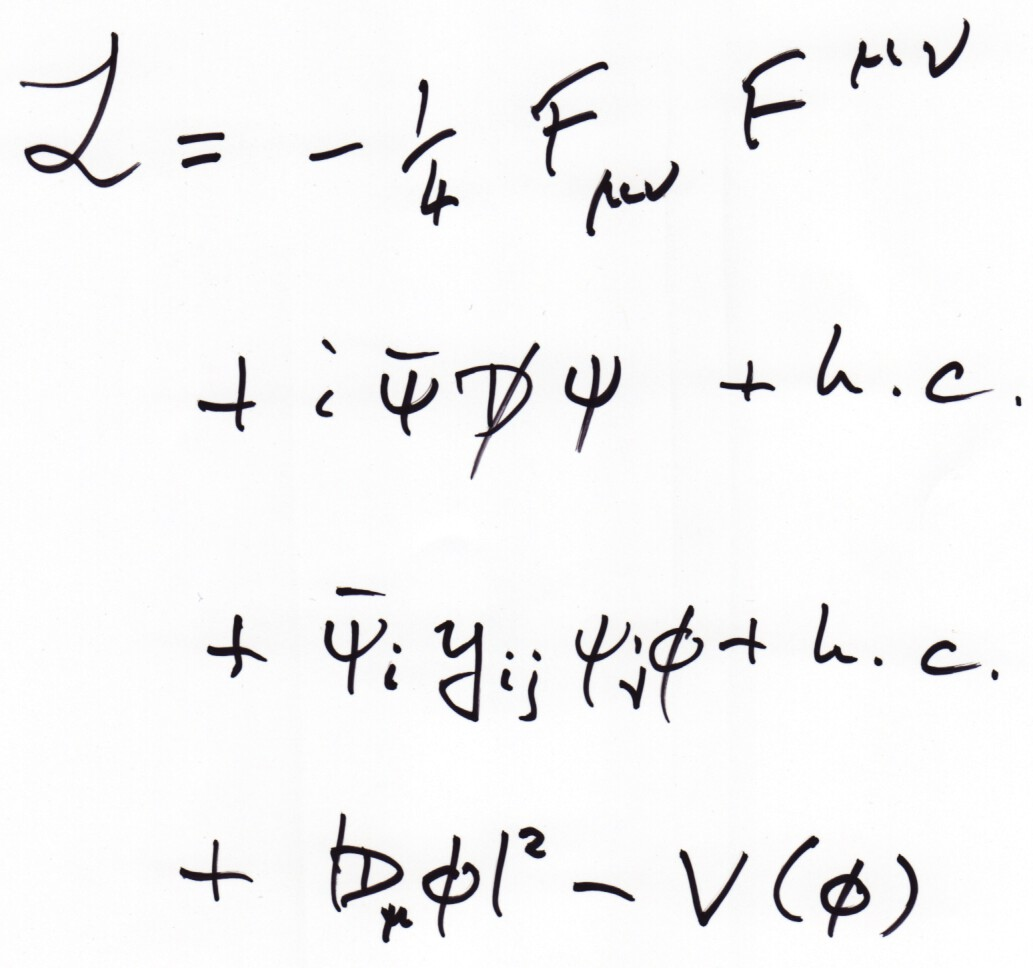 ℒ = - 1/4 F_μν F^μν
+ i ψ̄ D̸ ψ + h.c.
+ ψ̄_i y_ij ψ_j ϕ + h.c.
+ |D_μ ϕ|² - V(ϕ)